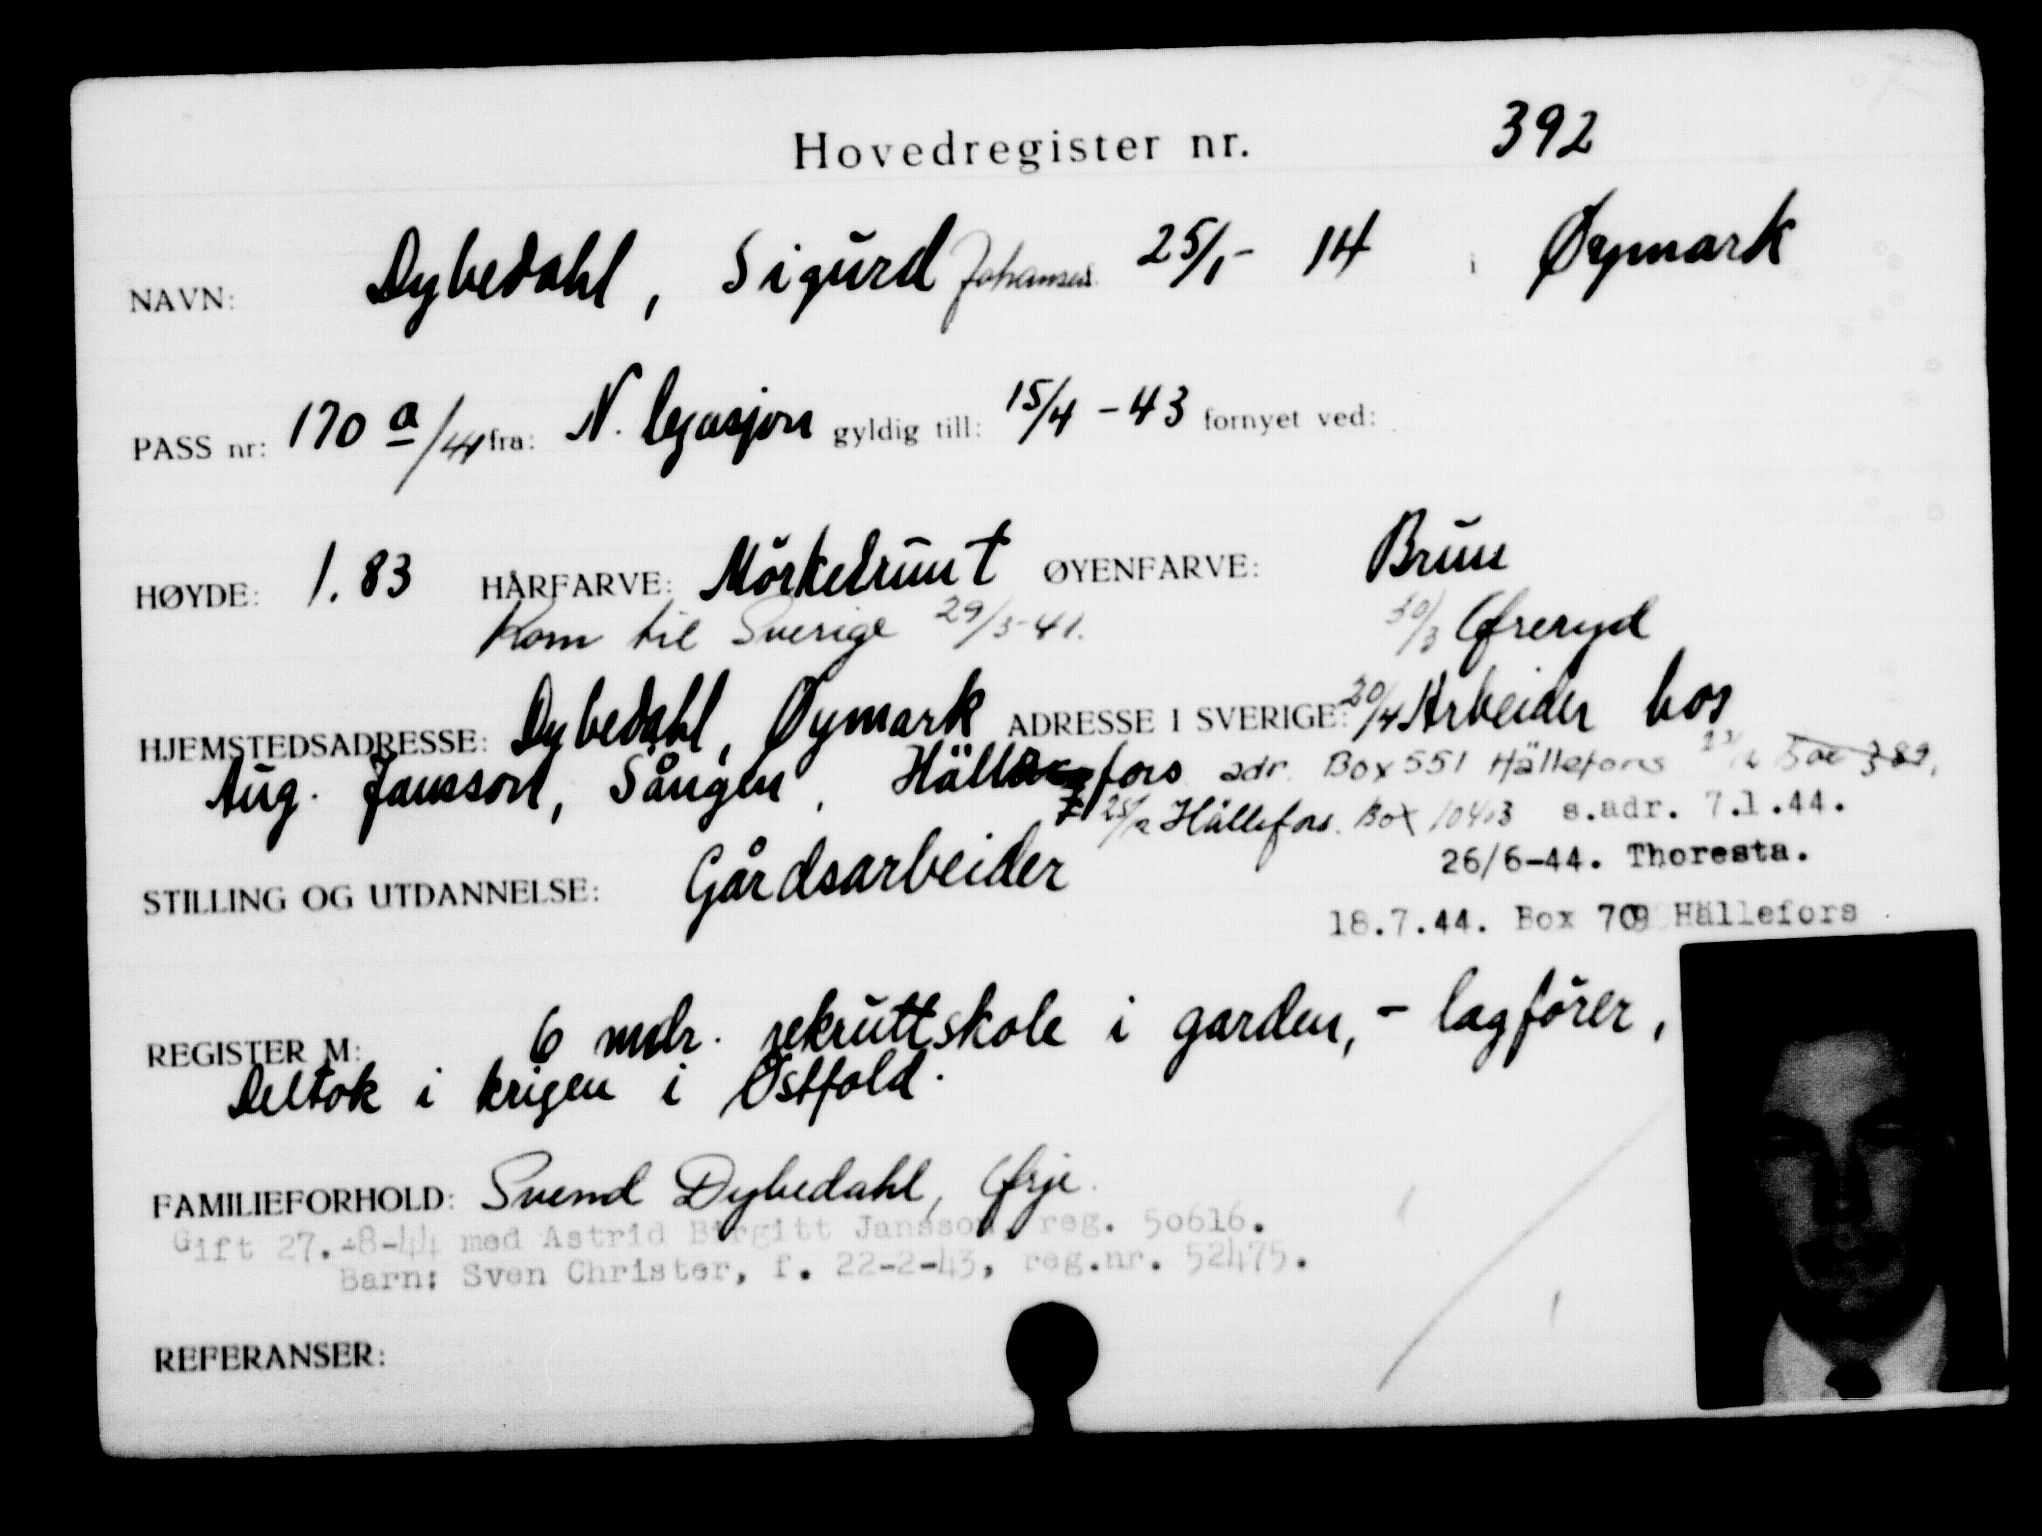 Hovedregister nr. 392
NAVN: Dybedahl, Sigurd Johansen 25/1- 14 i Øymark
PASS nr: 170 a/41 fra: N. legasjon gyldig till: 15/4-43 fornyet ved:
HØYDE: 1.83 HÅRFARVE: Mörkebrunt ØYENFARVE: Brune
Kom til Sverige 29/3-41. 30/3 Øreryd
HJEMSTEDSADRESSE: Dybedahl, Øymark ADRESSE I SVERIGE: 20/4 Arbeider hos
Aug. Jansson, Sången, Hällefors adr. Box 551 Hällefors
Hällefors. Box s.adr. 7.1.44.
26/6-44. Thoresta.
STILLING OG UTDANNELSE: Gårdsarbeider
18.7.44. Box 709 Hällefors
REGISTER M: 6 mdr. rekruttskole i garden, - lagförer,
Deltok i krigen i Østfold.
FAMILIEFORHOLD: Svend Dybedahl, Ørje.
Gift 27.-8-44 med Astrid Birgitt Jansson, reg. 50616.
Barn: Sven Christer, f. 22-2-43, reg.nr. 52475.
REFERANSER: